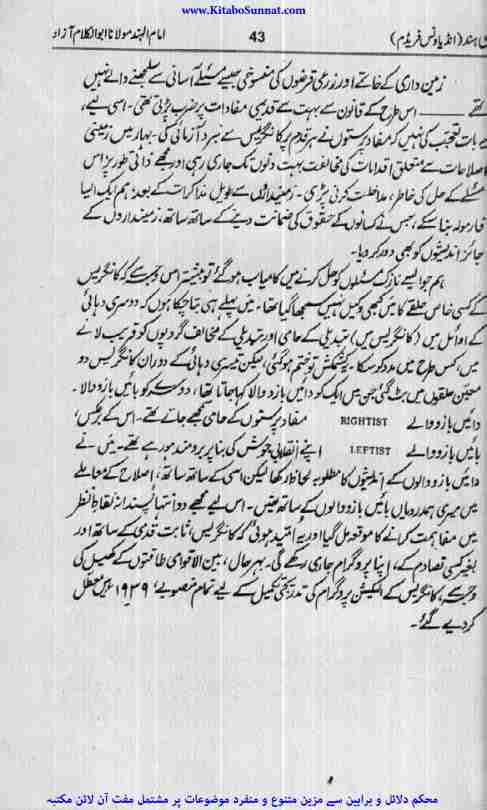 www.KitaboSunnat.com
ی ہند (انڈیا ونس فریڈم) 43 امام الہند مولانا ابوالکلام آزاد
زمین داری کے خاتمے اور زرعی قرضوں کی منسوخی جیسے مسئلے آسانی سے سلجھنے والے نہیں
تھے ــــ اس طرح کے قانون سے بہت سے قدیمی مفادات پر ضرب پڑتی تھی۔ اسی لیے،
یہ بات تعجب کی نہیں کہ مفاد پرستوں نے ہر قدم پر کانگریس سے نبرد آزمائی کی۔ بہار میں زمینی
اصلاحات سے متعلق اقدامات کی مخالفت بہت دنوں تک جاری رہی اور مجھے ذاتی طور پر اس
مسئلے کے حل کی خاطر، مداخلت کرنی پڑی۔ زمینداروں سے طویل مذاکرات کے بعد، ہم ایک ایسا
فارمولہ بنا سکے، جس نے کسانوں کے حقوق کی ضمانت دینے کے ساتھ ساتھ، زمینداروں کے
جائز اندیشوں کو بھی دور کر دیا۔
ہم جو ایسے نازک مسئلوں کو حل کرنے میں کامیاب ہو گئے تو بیشتر اس وجہ سے کہ کانگریس
کے کسی خاص حلقے کا میں کبھی وکیل نہیں سمجھا گیا تھا۔ میں پہلے ہی بتا چکا ہوں کہ دوسری دہائی
کے اوائل میں (کانگریس میں) تبدیلی کے حامی اور تبدیلی کے مخالف گروہوں کو قریب لانے
میں، کس طرح میں مدد کر سکا۔ یہ کشمکش تو ختم ہو گئی، لیکن تیسری دہائی کے دوران کانگریس دو
معین حلقوں میں بٹ گئی جن میں ایک کو دائیں بازو والا کہا جاتا تھا، دوسرے کو بائیں بازو والا۔
دائیں بازو والے RIGHTIST مفاد پرستوں کے حامی سمجھے جاتے تھے۔ اس کے برعکس،
بائیں بازو والے LEFTIST اپنے انقلابی جوش کی بنا پر برومند ہو رہے تھے۔ میں نے
دائیں بازو والوں کے اندیشوں کا مطلوبہ لحاظ رکھا لیکن اسی کے ساتھ ساتھ، اصلاح کے معاملے
میں میری ہمدردیاں بائیں بازو والوں کے ساتھ تھیں۔ اس لیے مجھے دو انتہا پسندانہ نقطہ ہائے نظر
میں مفاہمت کرانے کا موقعہ مل گیا اور یہ امید ہوئی کہ کانگریس، ثابت قدمی کے ساتھ اور
بغیر کسی تصادم کے، اپنا پروگرام جاری رکھے گی۔ بہرحال، بین الاقوامی طاقتوں کے کھیل کی
وجہ سے، کانگریس کے الیکشن پروگرام کی تدریجی تکمیل کے لیے تمام منصوبے، ۱۹۳۹ء میں معطل
کر دیے گئے۔
محکم دلائل و براہین سے مزین متنوع و منفرد موضوعات پر مشتمل مفت آن لائن مکتبہ